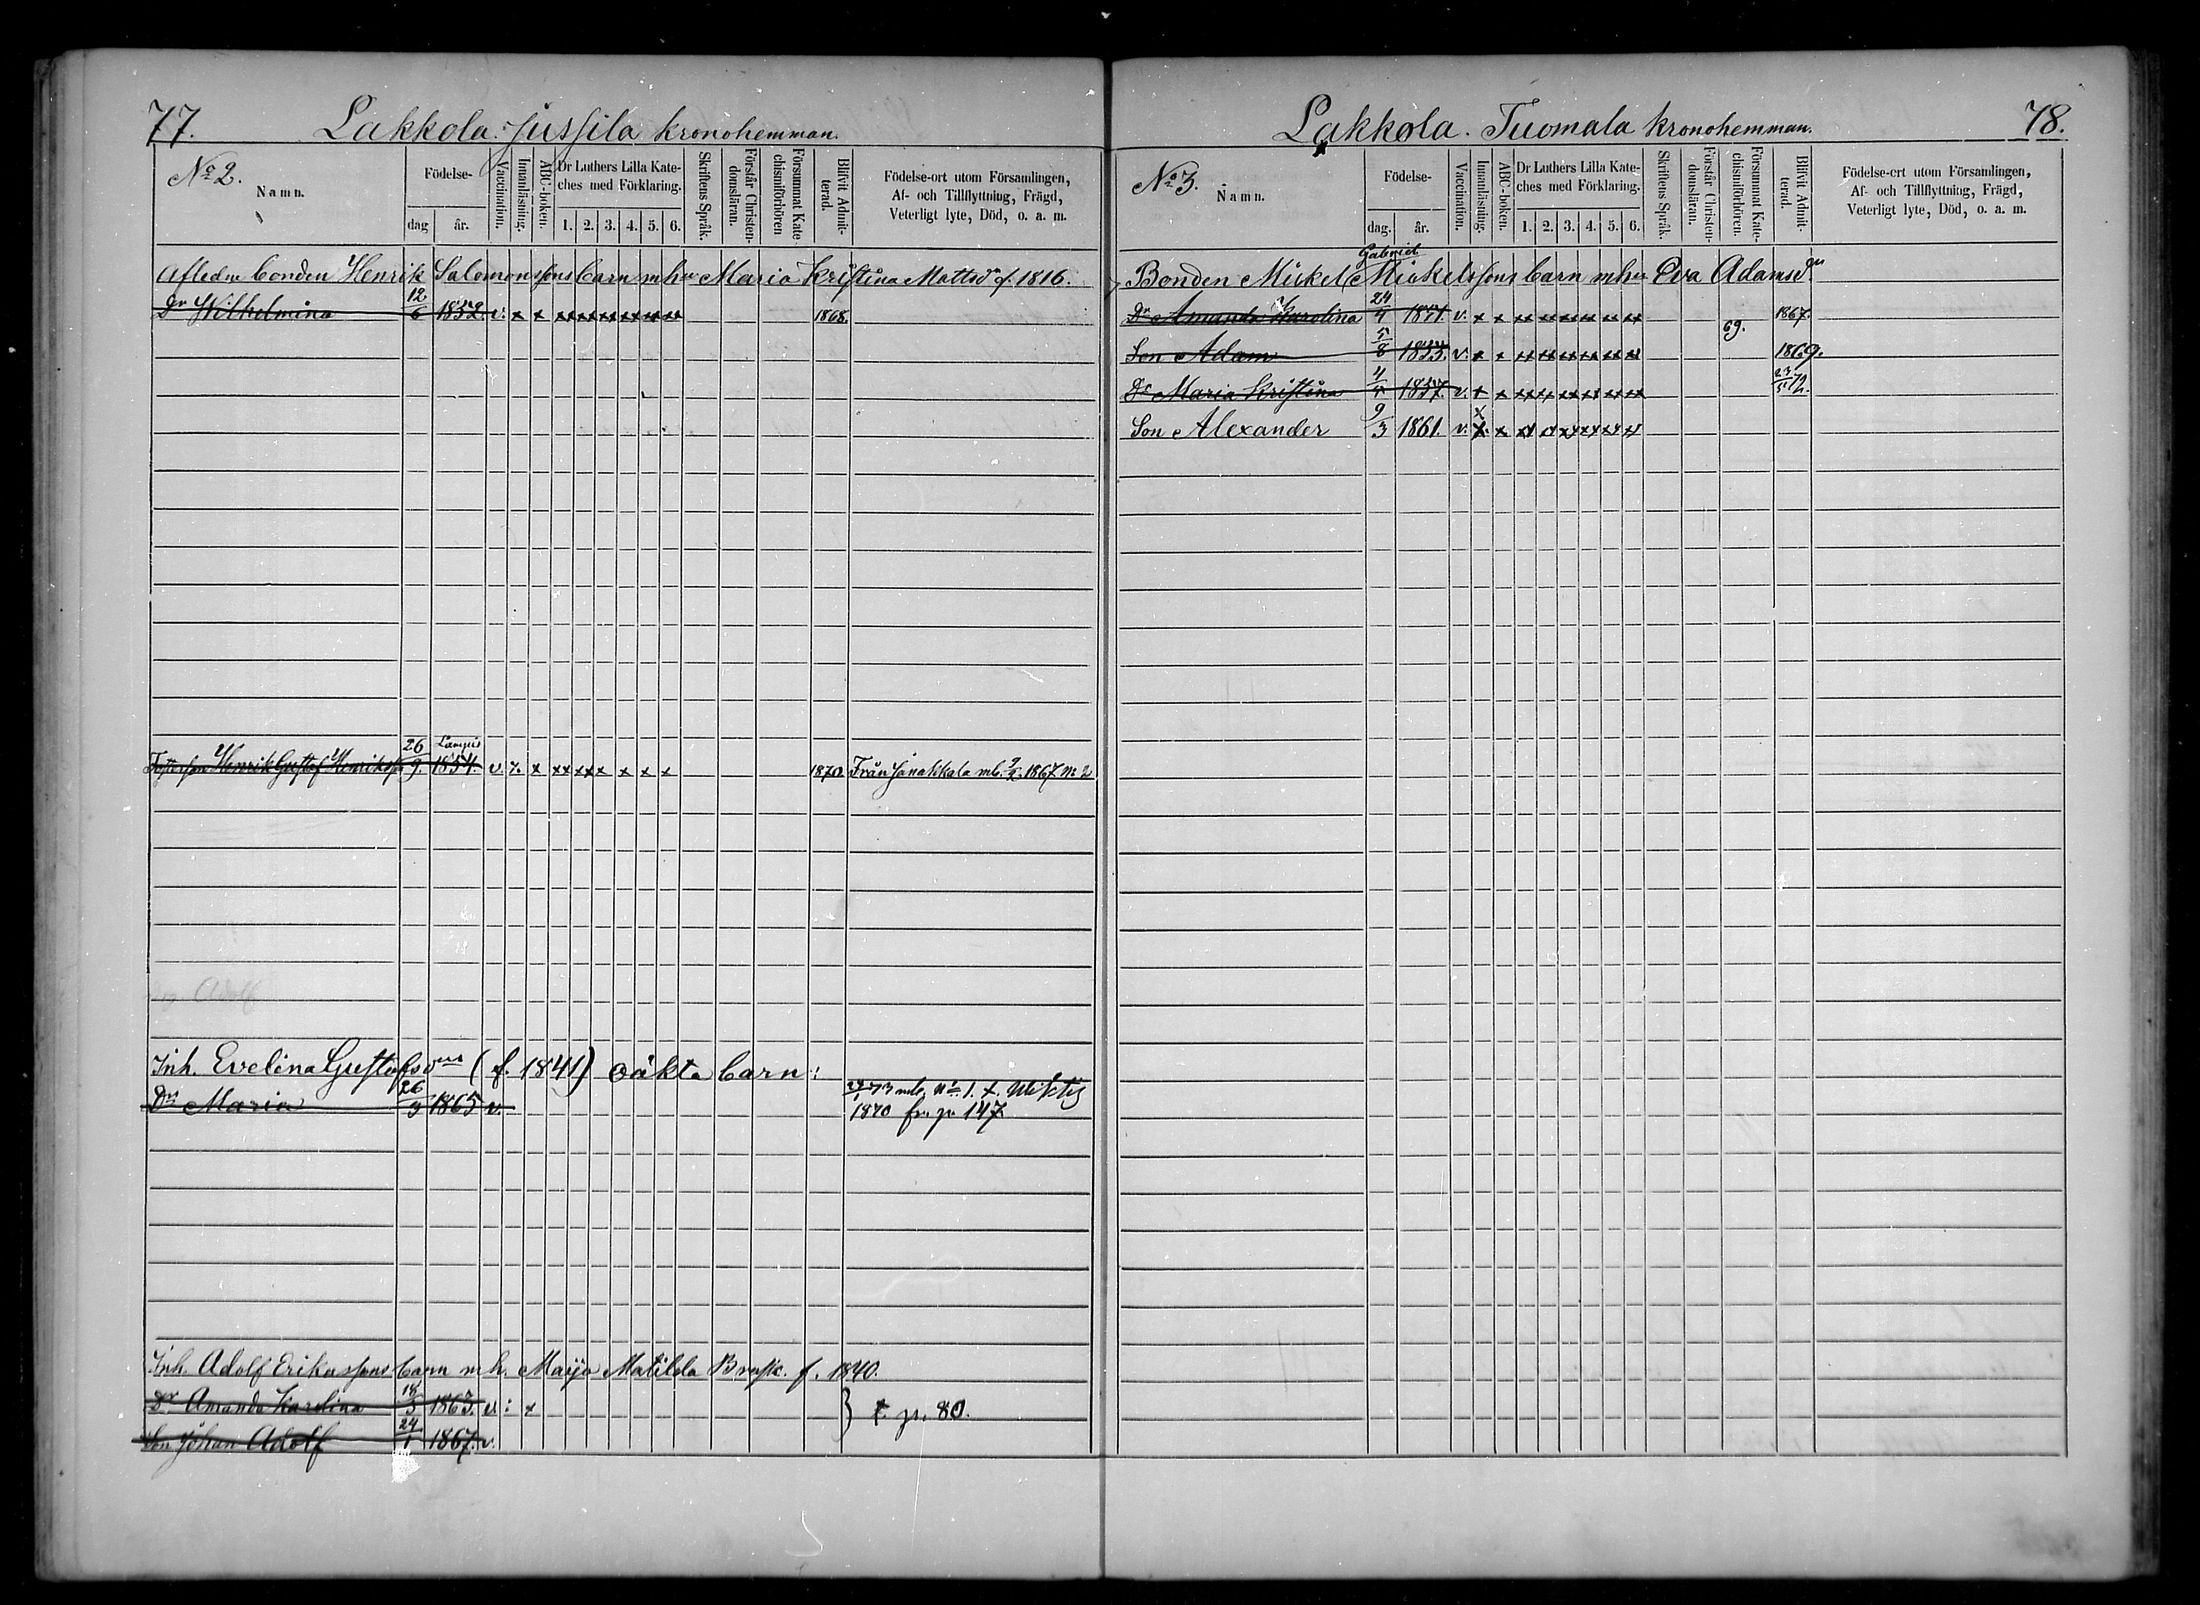 77.
Lakkola. Jussila kronohemman.
No 2.
Namn.
Födelse-
dag
år.
Vaccination.
Innanläsning.
ABC-boken.
Dr Luthers Lilla Kate-
ches med Förklaring.
1. 2. 3. 4. 5. 6.
Skriftens Språk.
Förstår Christen-
domsläran.
Försummat Kate-
chismiförhören
Blifvit Admit-
terad.
Födelse-ort utom Församlingen,
Af- och Tillflyttning, Frägd,
Veterligt lyte, Död, o. a. m.
Afledne bonden Henrik Salomonssons barn m hu Maria Kristina Mattsdr f. 1816.
Dr Wilhelmina 12/6 1852. v. x x xx xx xx xx xx xx 1868.
Fosterson Henrik Gustaf Henriksson 26/9. Lampis 1854. v. x x xx xx x x x x 1870 Från Janakkala 1867 No 2
Adolf
Inh. Evelina Gustafsdrs (f. 1841) oäkta barn:
Dr Maria 26/9 1865 v.
1870 fr. p. 147
Inh. Adolf Erikssons barn m h. Maija Matilda f. 1840.
Dr Amanda Karolina 18/3 1863. v: x
} f. p. 80.
Son Johan Adolf 24/1 1867. v.
Lakkola. Tuomala kronohemman.
78.
No 3.
Namn.
Födelse-
dag.
år.
Vaccination.
Innanläsning.
ABC-boken.
Dr Luthers Lilla Kate-
ches med Förklaring.
1. 2. 3. 4. 5. 6.
Skriftens Språk.
Förstår Christen-
domsläran.
Försummat Kate-
chismiförhören.
Blifvit Admit-
terad.
Födelse-ort utom Församlingen,
Af- och Tillflyttning, Frägd,
Veterligt lyte, Död, o. a. m.
Gabriel
Bonden Mickel Mickelssons barn m hu Eva Adamsdr
Dr Amanda Karolina 24/4 v. x x xx xx xx xx xx xx 1867.
69.
Son Adam 5/8 1853. v. x x xx xx xx xx xx xx 1869.
Dr Maria Kristina 1857. v. x x xx xx xx xx xx xx 23/5 72.
Son Alexander 9/3 1861. v. x x xx xx xx xx xx xx